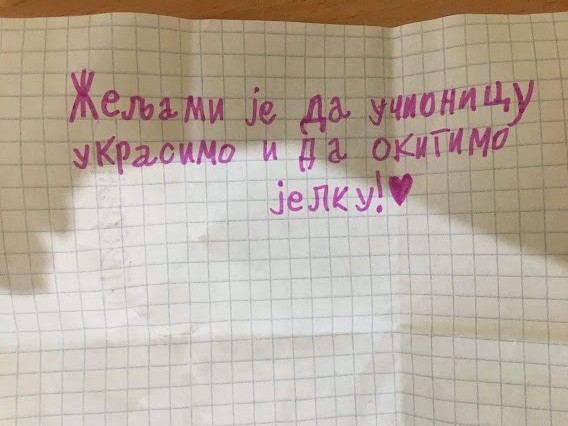 Жељами је да учионицу
украсимо и да окитимо
јелку!♥